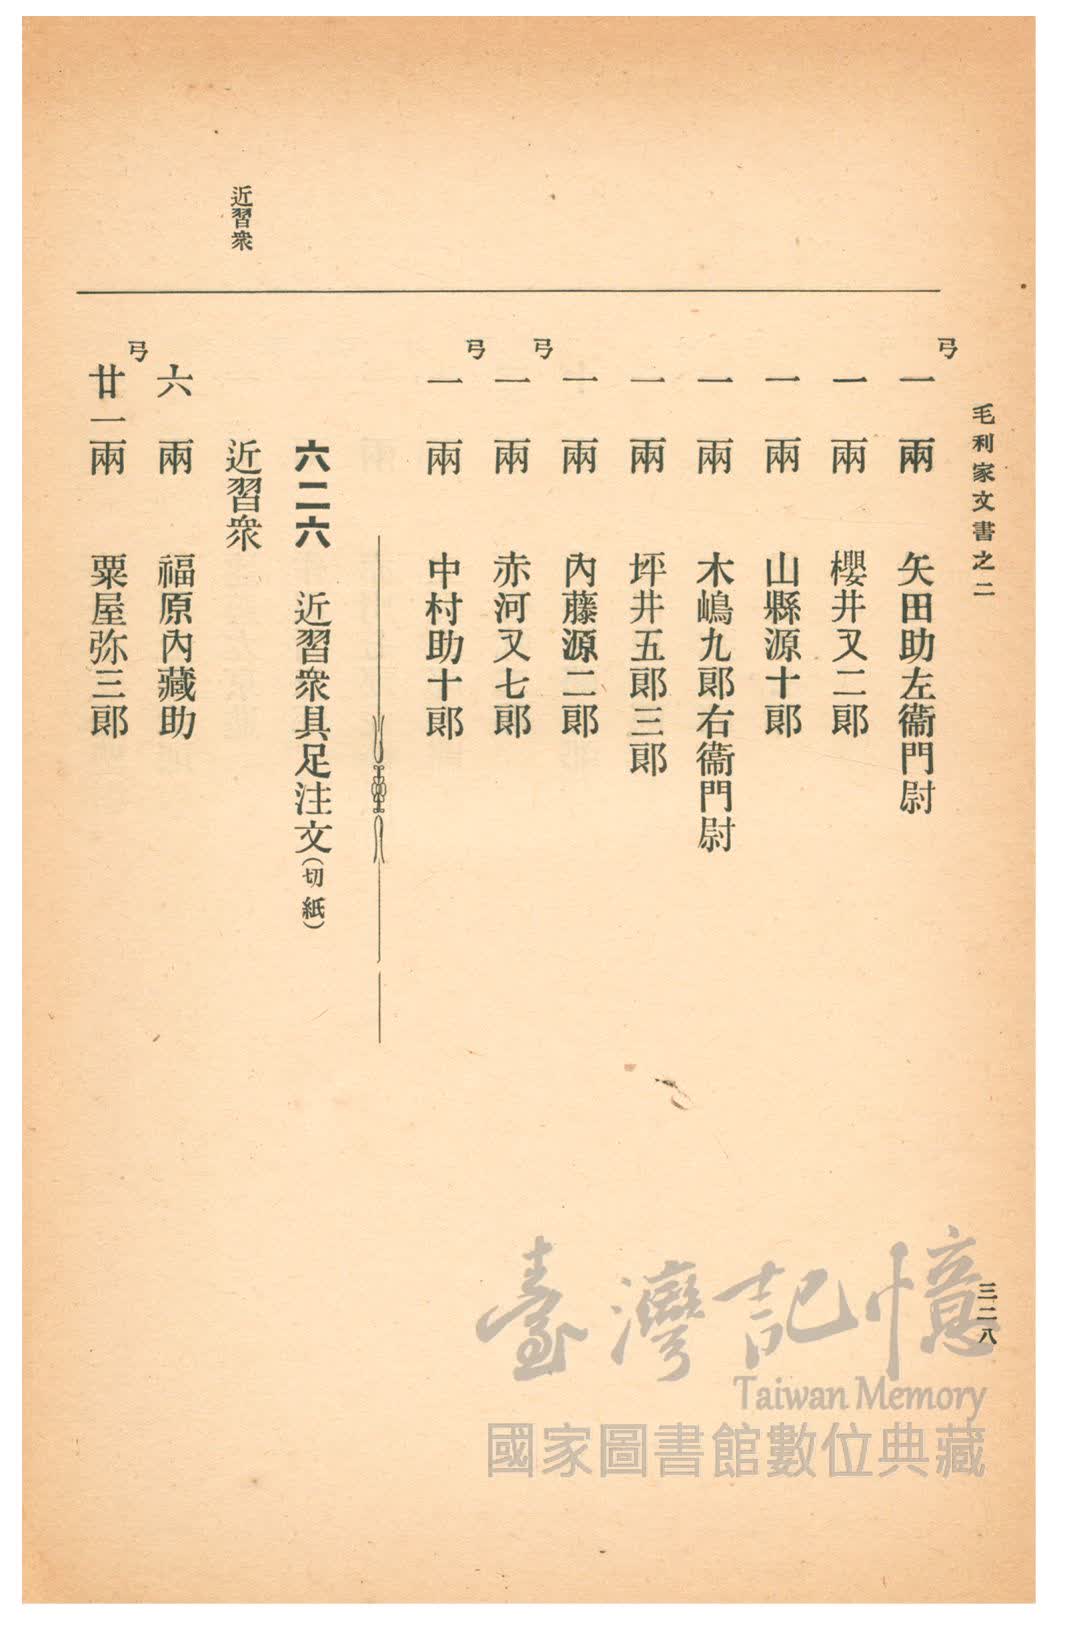 毛利家文書之二
弓
一兩 矢田助左衞門尉
一兩 櫻井又二郎
一兩 山縣源十郎
一兩 木嶋九郎右衞門尉
一兩 坪井五郎三郎
一兩 內藤源二郎
弓
一兩 赤河又七郎
弓
一兩 中村助十郎
六二六 近習衆具足注文(切紙)
近習衆
近習衆
六兩 福原內藏助
弓
廿一兩 粟屋弥三郎
三二八
臺灣記憶
Taiwan Memory
國家圖書館數位典藏